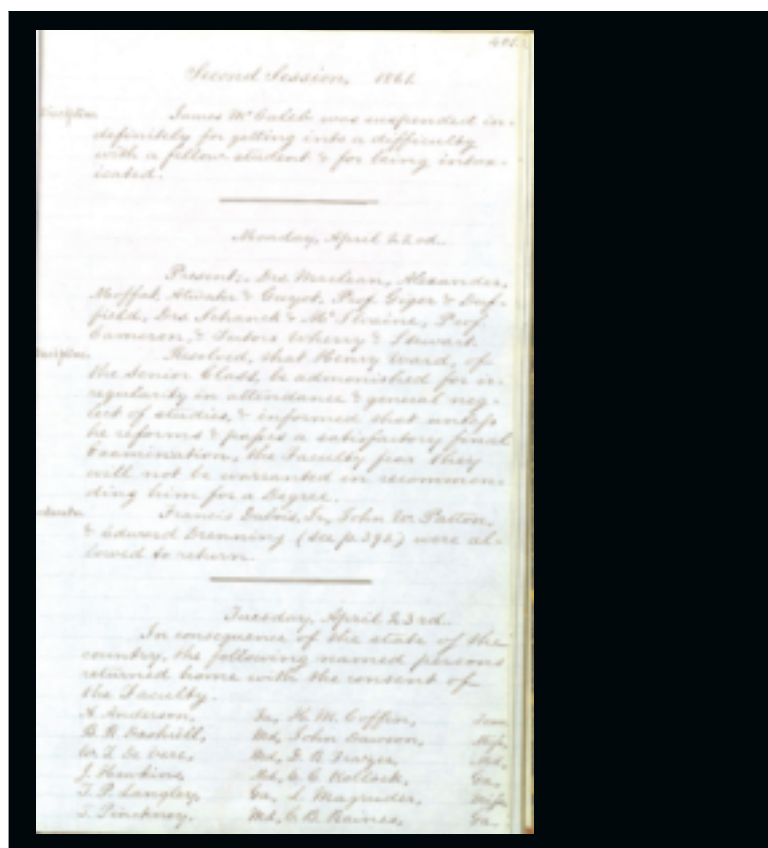 Second Session, 1861
James McCaleb was suspended in-
definitely for getting into a difficulty
with a fellow-student & for being intox-
icated.
Monday, April 22nd.
Present: Drs Maclean, Alexander,
Moffat, Atwater & Guyot, Prof. Giger & Duf-
field, Drs Schanck & McIlvaine, Prof
Cameron, & Tutors Wherry & Stewart.
Resolved, that Henry Ward, of
the Senior Class, be admonished for ir-
regularity in attendance & general neg-
lect of studies, & informed that unless
he reforms & passes a satisfactory final
Examination, the Faculty fear they
will not be warranted in recommen-
ding him for a Degree.
Francis Dubois, Jr, John W. Patton,
& Edward Drenning (see p. 392) were al-
lowed to return.
Tuesday, April 23rd.
In consequence of the state of the
country, the following named persons
returned home with the consent of
the Faculty.
Anderson, H. M. Coffin,
Md, John Dawson, Miss,
Md,
J. Hawkins, Md, Kollock, Ga,
T. P. Langley, Ga, Magruder, Miss,
Pinckney, Md, Raines, Ga.